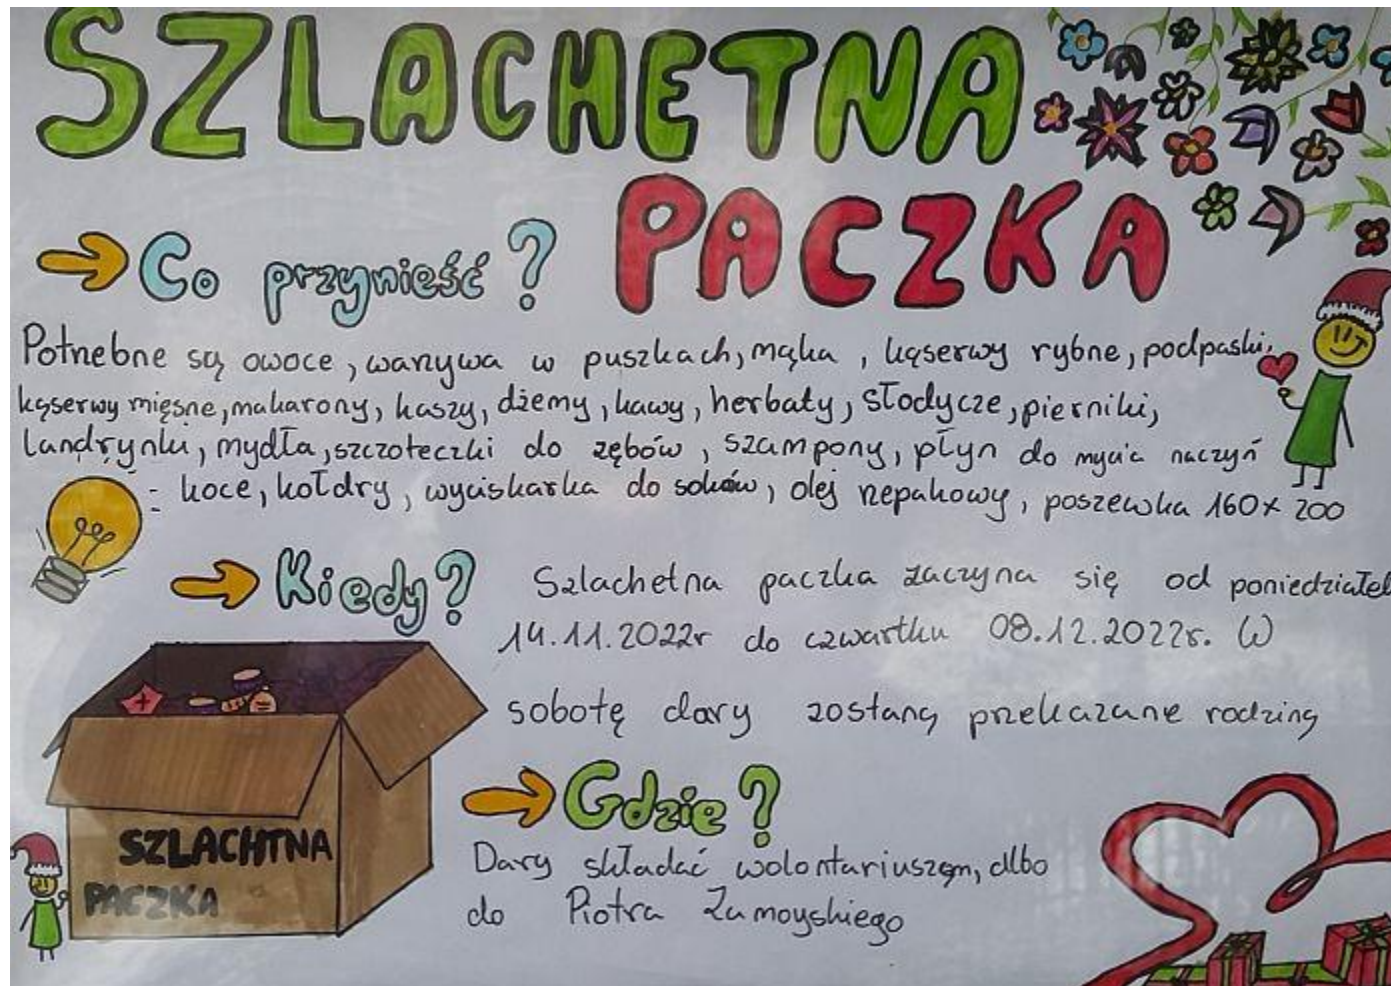 SZLACHETNA
PACZKA
Co przynieść?
Potrzebne są owoce, warzywa w puszkach, mąka, kąserwy rybne, podpaski,
kąserwy mięsne, makarony, kaszy, dżemy, kawy, herbaty, słodycze, pierniki,
landrynki, mydła, szczoteczki do zębów, szampony, płyn do mycia naczyń
- koce, kołdry, wyciskarka do soków, olej rzepakowy, poszewka 160x200
Kiedy? Szlachetna paczka zaczyna się od poniedziałek
14.11.2022r do czwartku 08.12.2022r. W
sobotę dary zostaną przekazane rodziną
Gdzie?
Dary składać wolontariuszom, albo
do Piotra Zamoyskiego
SZLACHTNA
PACZKA